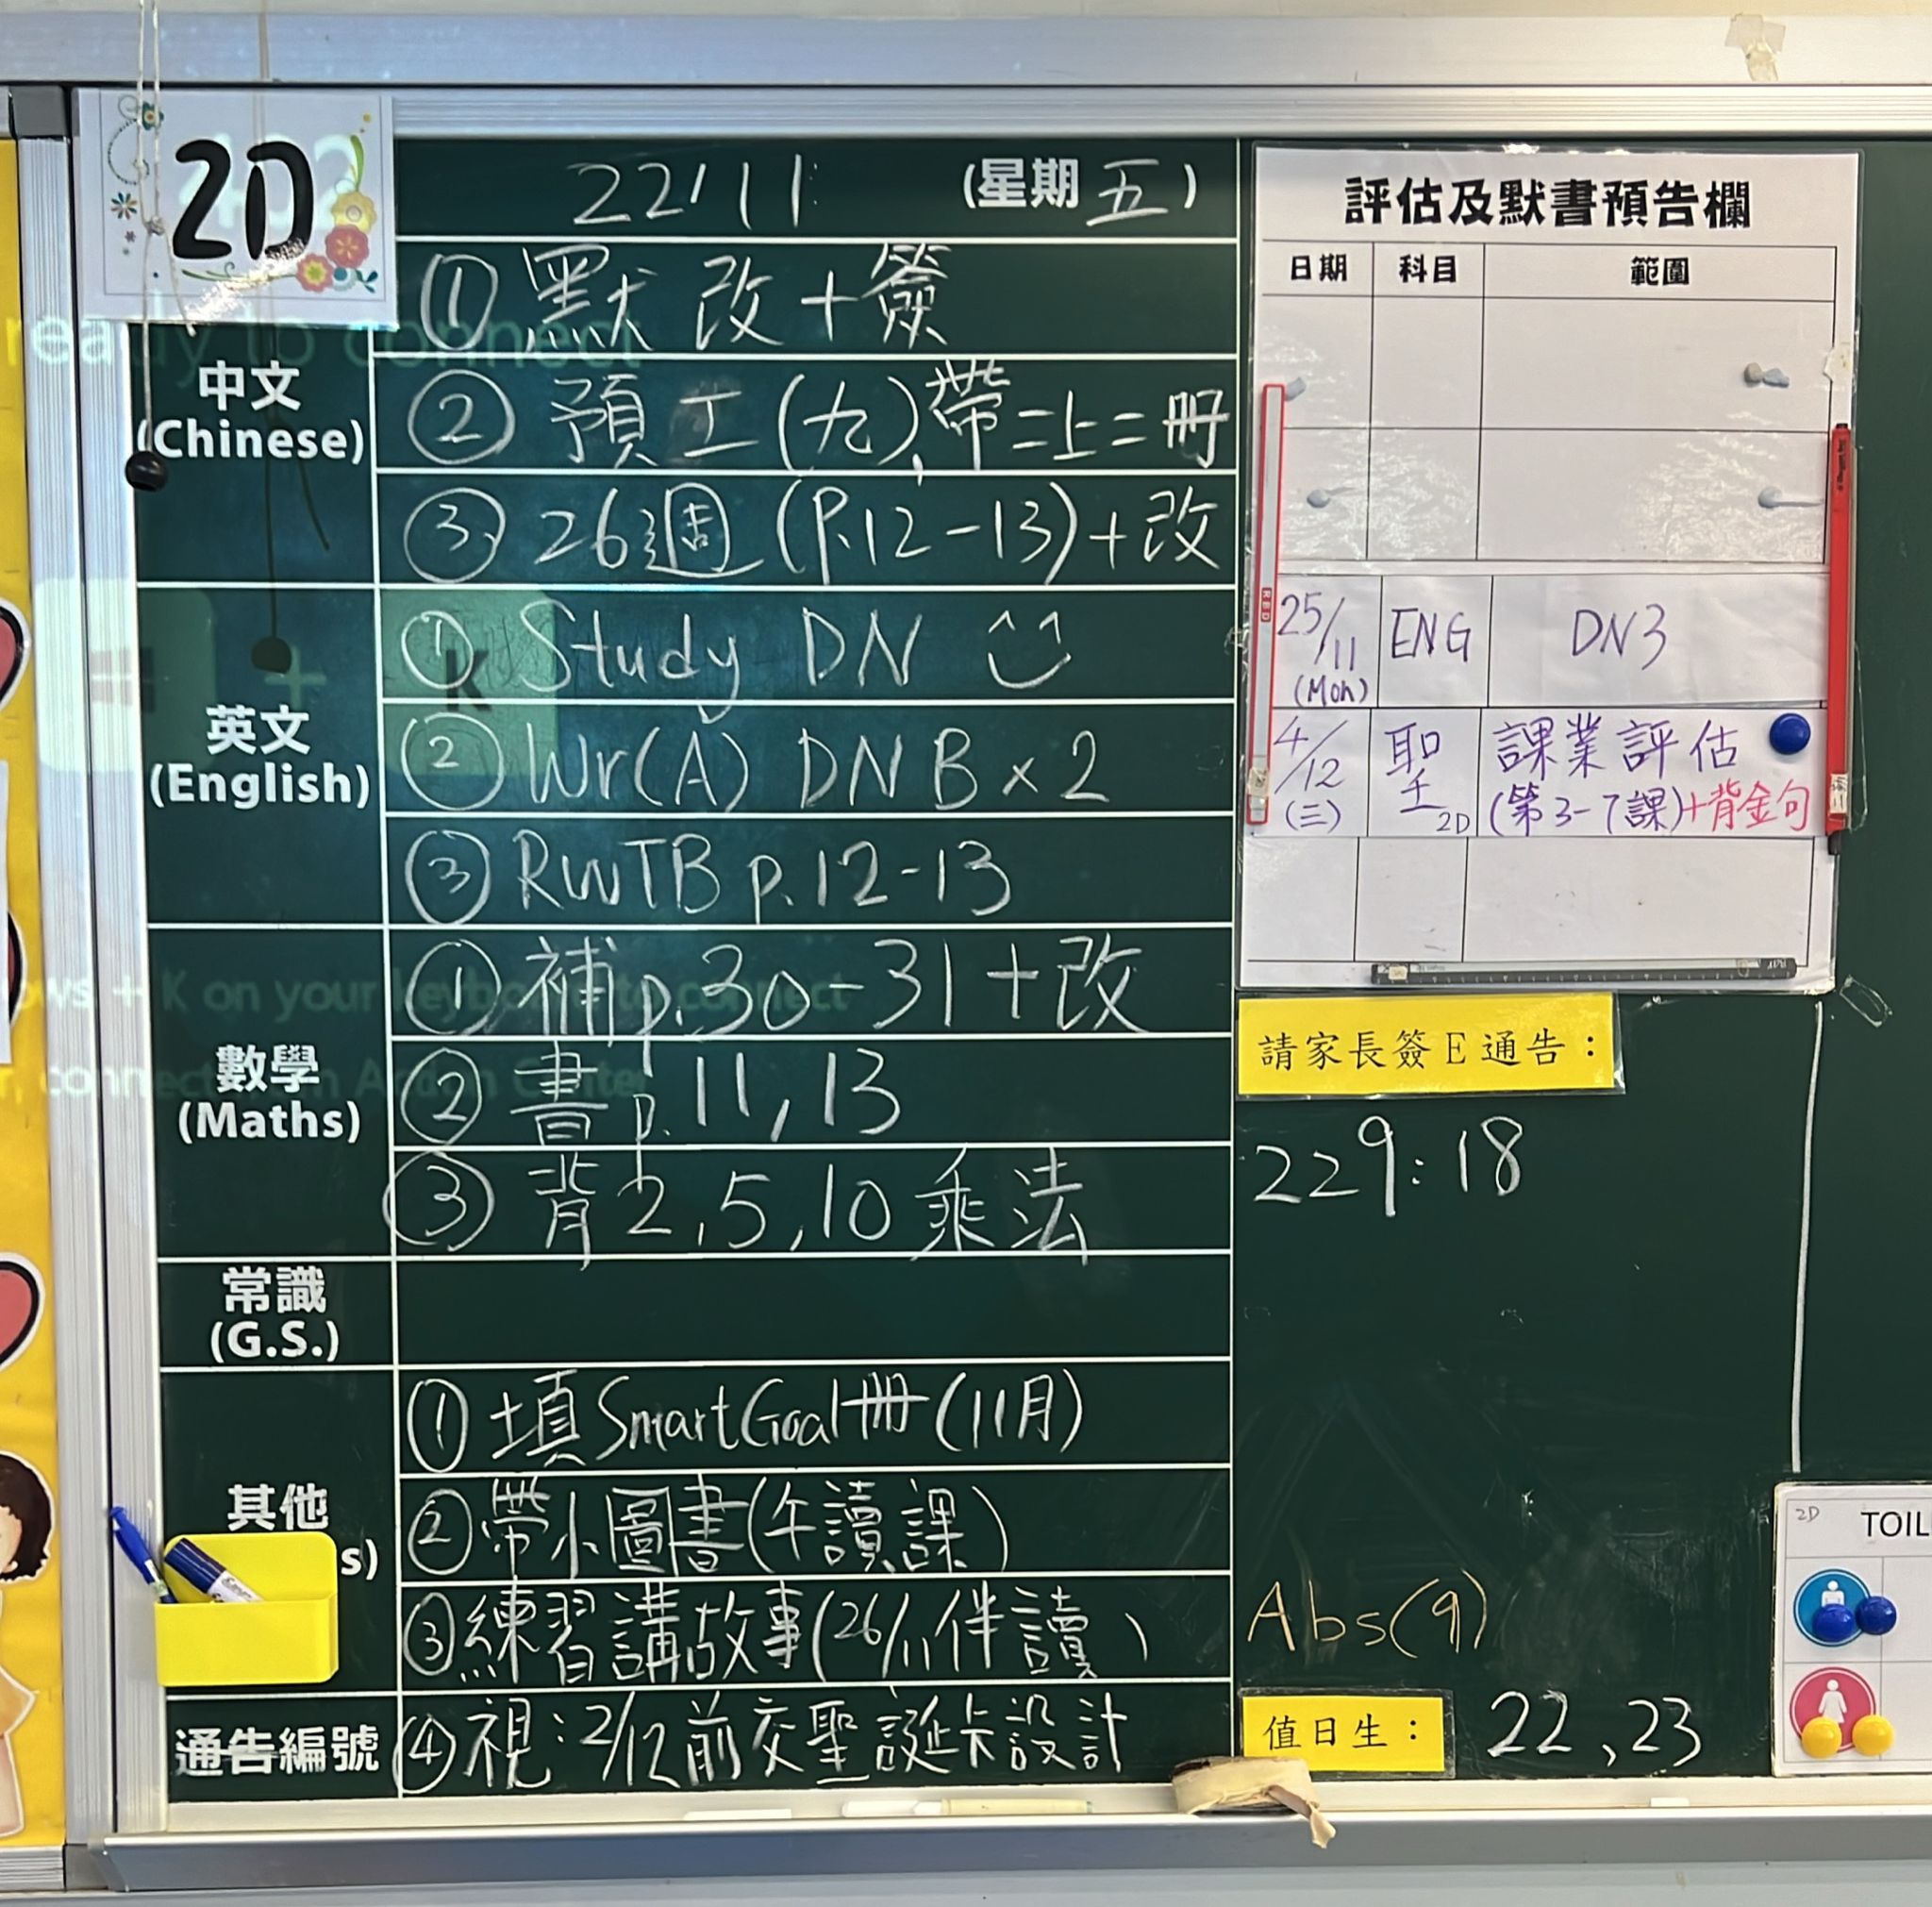 2D
22/11 (星期五)
中文
(Chinese)
① 默改+簽
② 預工(九)、帶二上二冊
③ 26週(P.12-13)+改
英文
(English)
① Study DN
② Wr(A) DN B x 2
③ RWTB p.12-13
數學
(Maths)
① 補p.30-31+改
② 書p.11, 13
③ 背2,5,10乘法
常識
(G.S.)
其他
s)
① 填SmartGoal冊(11月)
② 帶小圖書(午讀課)
③ 練習講故事(26/11伴讀)
通告編號
④ 視:2/12前交聖誕卡設計
評估及默書預告欄
日期 科目 範圍
25/11 (Mon) ENG DN3
4/12 (三) 聖 2D 課業評估
(第3-7課)+背金句
請家長簽E通告:
229:18
Abs(9)
值日生: 22,23
2D TOIL
ready to connect
+ K
ows + K on your keyboard to connect